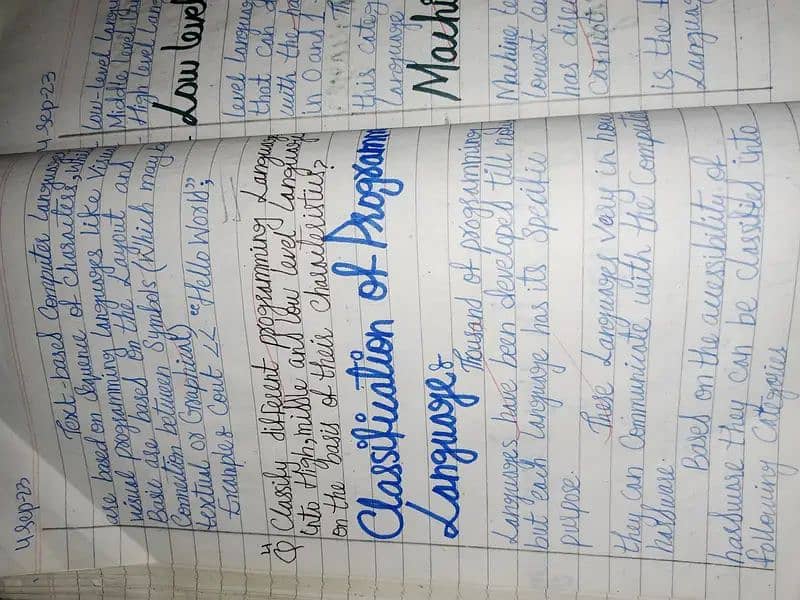 4 sep-23
Text-based Computer Language
are based on Sequence of Characters, whi
visual programming languages like Visu
Basic are based on the Layout and
Connection between Symbols (Which may b
textual or Graphical)
Example: Cout << "Hello World";
Q4 Classify different programming Language
into High, middle and low level Language
on the basis of their Characteristics?
Classification of Programm
Languages
Thousand of programming
Languages have been developed till now
but each language has its Specific
purpose.
These Languages Vary in how
they can Communicate with the Compute
hardware
Based on the accessibility of
hardware they can be classified into
following Categories
4 sep-23
Low-level Langua
Middle Level
High level Langu
Low level
level Languag
that can d
with the
in 0 and 1.
this categ
Language
Machi
Machine
Lowest
has
is the
Languag